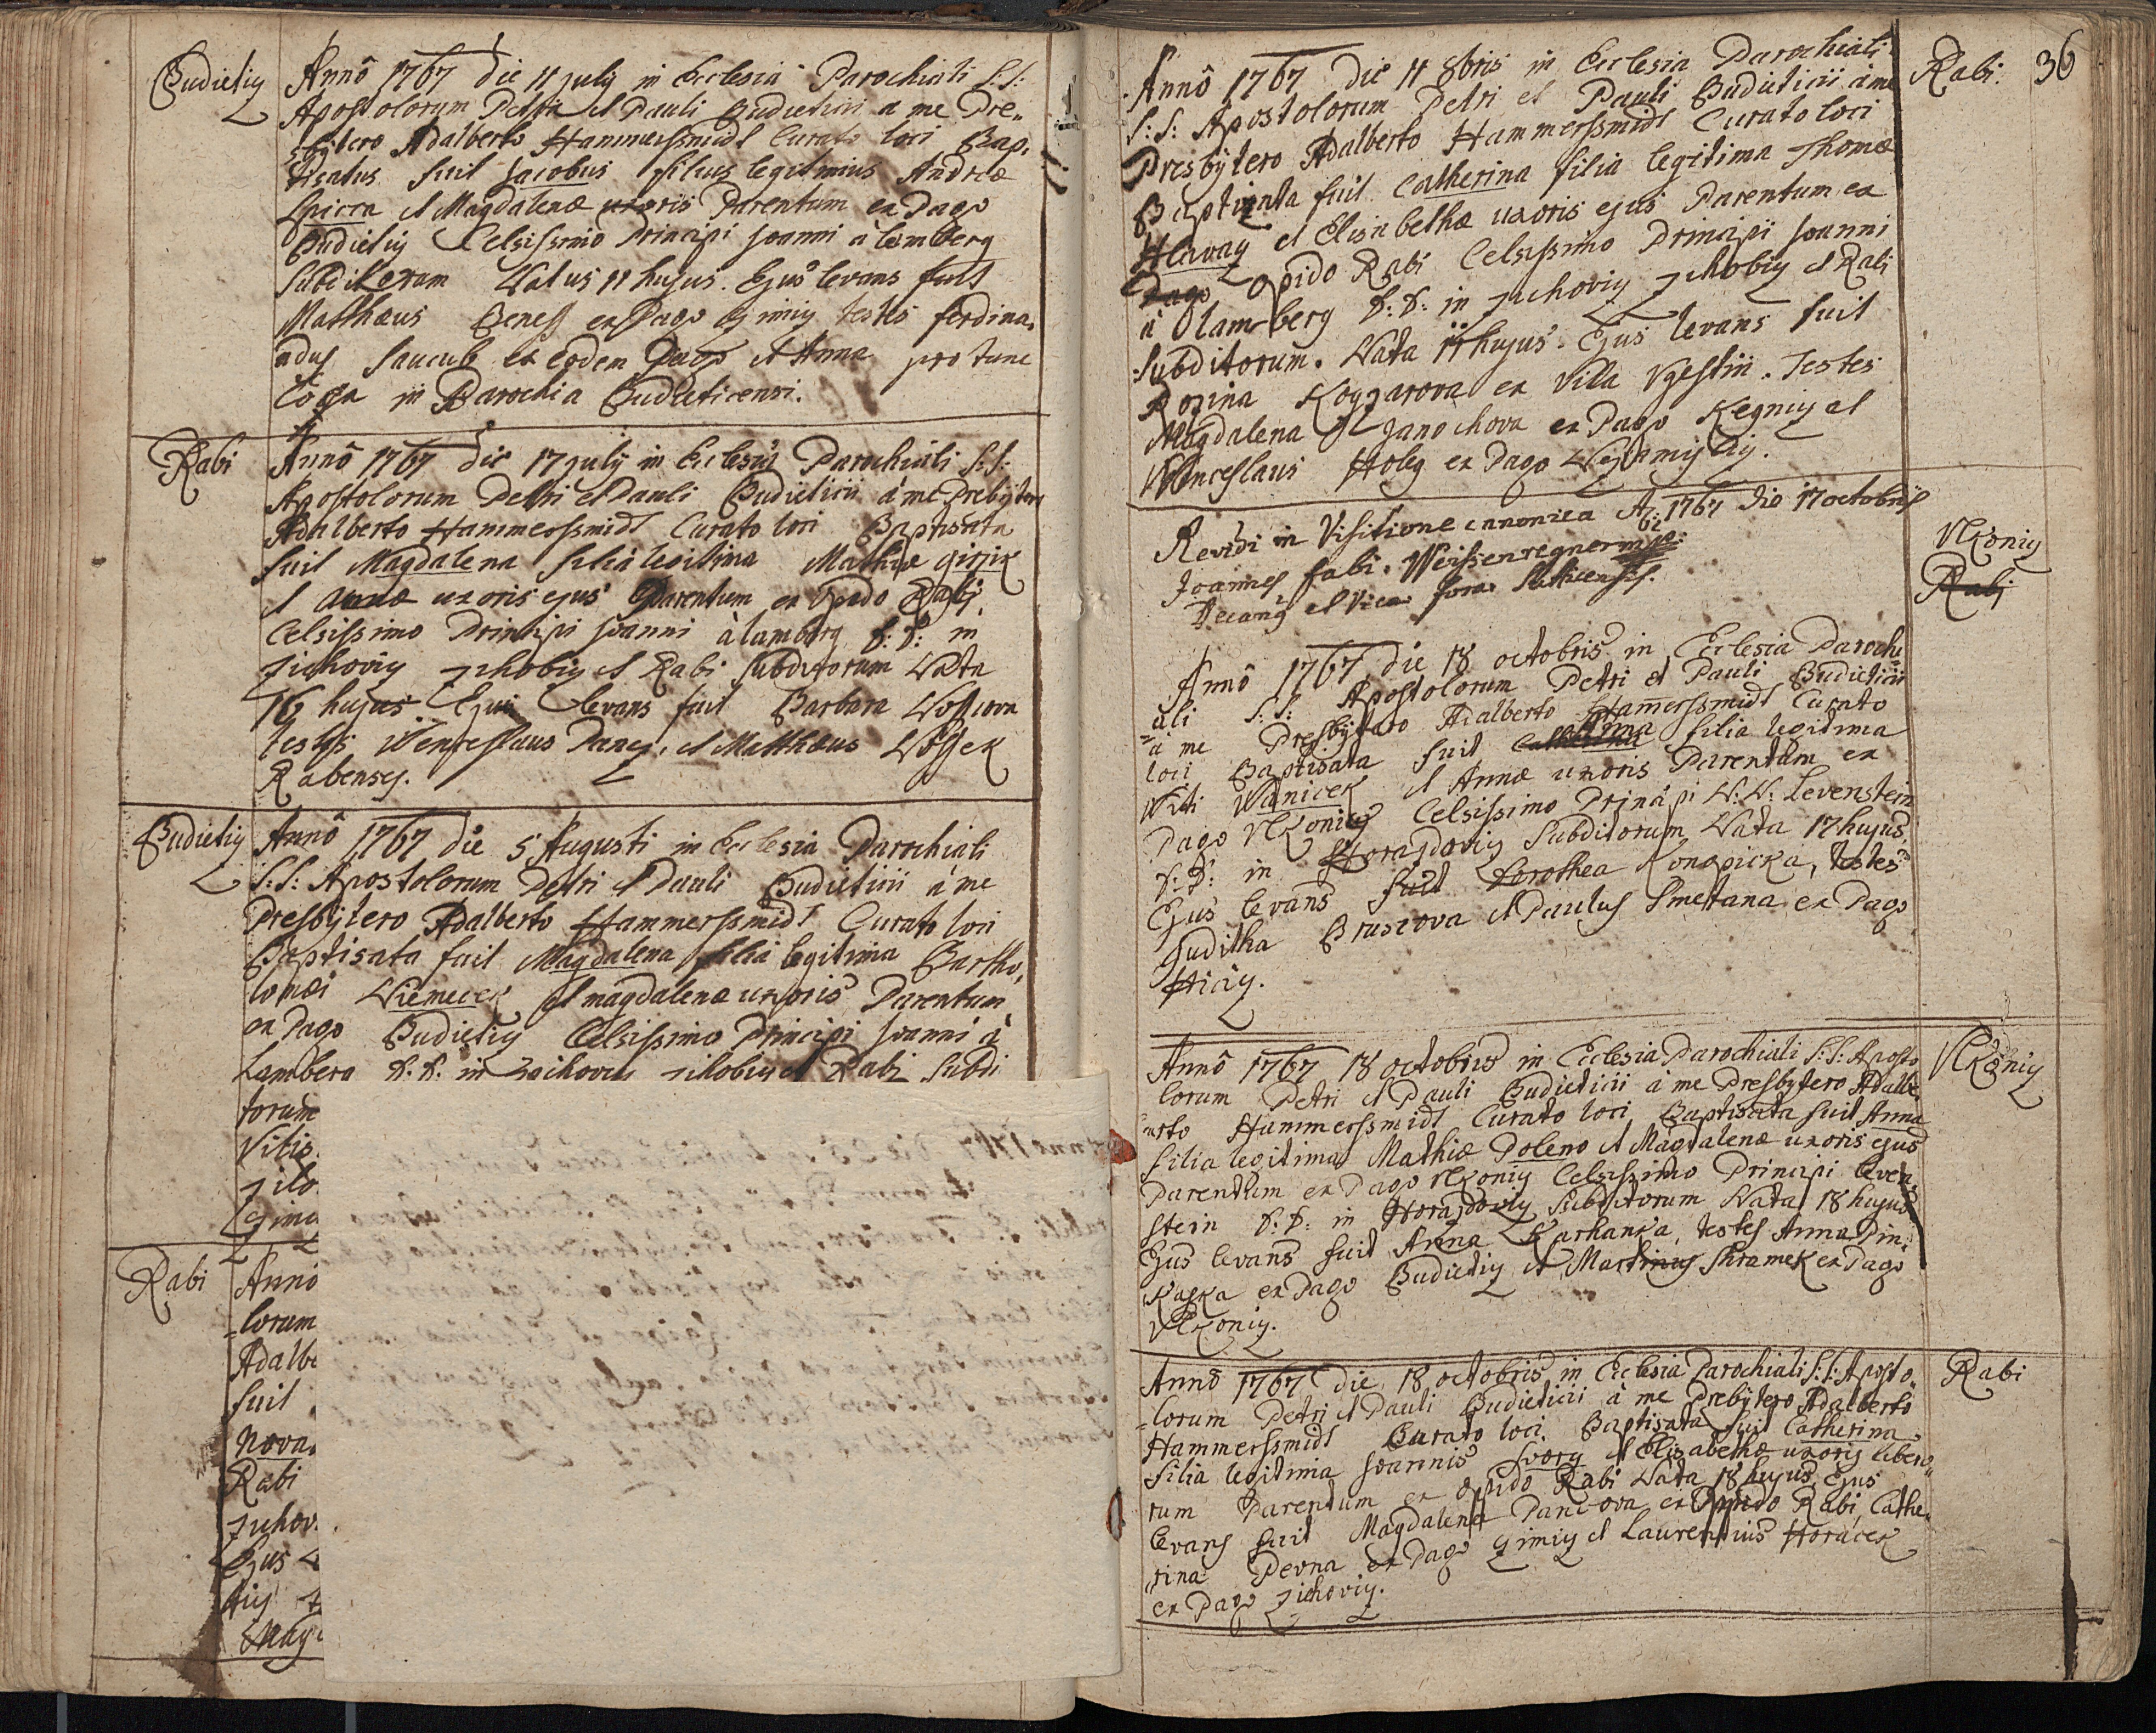 Budietiy
Anno 1767 die 11 july in Ecclesia Parochiali S: S:
Apostolorum Petri et Pauli Budieticii a me Pre„
sbytero Adalberto Hammerssmidt Curato loci Bap„
tisatus fuit Jacobus filius legitimus Andreæ
Spicra et Magdalenæ uxoris Parentum ex Pago
Budietiy Celsissimo Principi Joanni à lamberg
Subditorum Natus 11 hujus. Ejus levans fuit
Matthæus Beness ex Pago Cimiy testes ferdina„
ndus ex eodem Pago et Anna pro tunc
Coqua in Parochia Budieticensi.
Rabi
Anno 1767 die 17 july in Ecclesia Parochiali S: S:
Apostolorum Petri et Pauli Budieticii à me Prebytero
Adalberto Hammerssmidt Curato loci Baptisata
fuit Magdalena filia legitima Mathiæ Girzik
et Annæ uxoris ejus Parentum ex Opido Rabi,
Celsissimo Principi Joanni à lamberg D: D: in
Zichoviy Zihobiy et Rabi Subditorum Nata
16 hujus Ejus levans fuit Barbara
testes Wenceslaus Panez, et Matthæus
Rabenses.
Budietiy
Anno 1767 die 5 Augusti in Ecclesia Parochiali
S: S: Apostolorum Petri et Pauli Budieticii à me
Presbytero Adalberto Hammerssmidt Curato loci
Baptisata fuit Magdalena filia legitima Bartho„
lomæi Niemecek et magdalenæ uxoris Parentum
ex Pago Budietiy Celsissimo Principi Joanni à
Lamberg D: D: in Zichoviy zihobiy et Rabi Subdi
torum
Vitis
zilo
Cimi
Rabi
Anno
lorum
Adalb
fuit
Nova
Rabi
zichov
Ejus
tiy
Mag
36
Rabi
Anno 1767 die 11 8bris in Ecclesia Parochiali
S: S: Apostolorum Petri et Pauli Budieticii à me
Presbytero Adalberto Hammerssmidt Curato loci
Baptisata fuit Catherina filia legitima Thomæ
Hlavay et Elisabethæ uxoris ejus Parentum ex
Pago Opido Rabi Celsissimo Principi Joanni
à lamberg D: D: in zichoviy zihobiy et Rabi
Subditorum. Nata 11 hujus. Ejus levans fuit
Rozina ex Villa Ugestin. Testes
Magdalena Janochova ex Pago Kegniy et
Wenceslaus Holey ex Pago
Revidi in Visitione canonica A: 1767 die 17 octobris
Joannes fabi. Weissenregner mpr:
Decang et Vica: fora: Suticensis.
Vlkoniy
Rabi
Anno 1767 die 18 octobris in Ecclesia Parochi
ali S: S: Apostolorum Petri et Pauli Budieticii
à me Presbytero Adalberto Hamerssmidt Curato
loci Baptisata fuit Catherina filia legitima
Viti Wanicek et Annæ uxoris Parentum ex
Pago Vlkoniy Celsissimo Principi Levenstein
D: D: in Horazdoviy Subditorum Nata 17 hujus
Ejus levans fuit Dorothea Konopicka, testes
Juditha Bruscova et Paulus Smetana ex Pago
Hiciy.
Vlkoniy
Anno 1767 18 octobris in Ecclesia Parochiali S: S: Aposto
lorum Petri et Pauli Budieticii à me Presbytero Adalbe„
rto Hammerssmidt Curato loci Baptisata fuit Anna
filia legitima Mathiæ Poleno et Magdalenæ uxoris ejus
Parentum ex Pago Vlkoniy Celsissimo Principi leven„
stein D: D: in Horazdoviy Subditorum Nata 18 hujus
Ejus levans fuit Anna Karhanka, testes Anna Pin„
kaska ex Pago Budietiy et Martinus Shramek ex Pago
Vlkoniy.
Rabi
Anno 1767 die 18 octobris in Ecclesia Parochiali S: S: Aposto„
lorum Petri et Pauli Budieticii à me Prebytero Adalberto
Hammerssmidt Curato loci. Baptisata fuit Catherina
filia legitima Joannis et Elisabethæ uxoris libero„
rum Parentum ex Opido Rabi Nata 18 hujus Ejus
levans fuit Magdalena Pancova ex Oppido Rabi, Cathe„
rina Pevna ex Pago Cimiy et Laurentius Horacek
ex Pago Zichoviy.